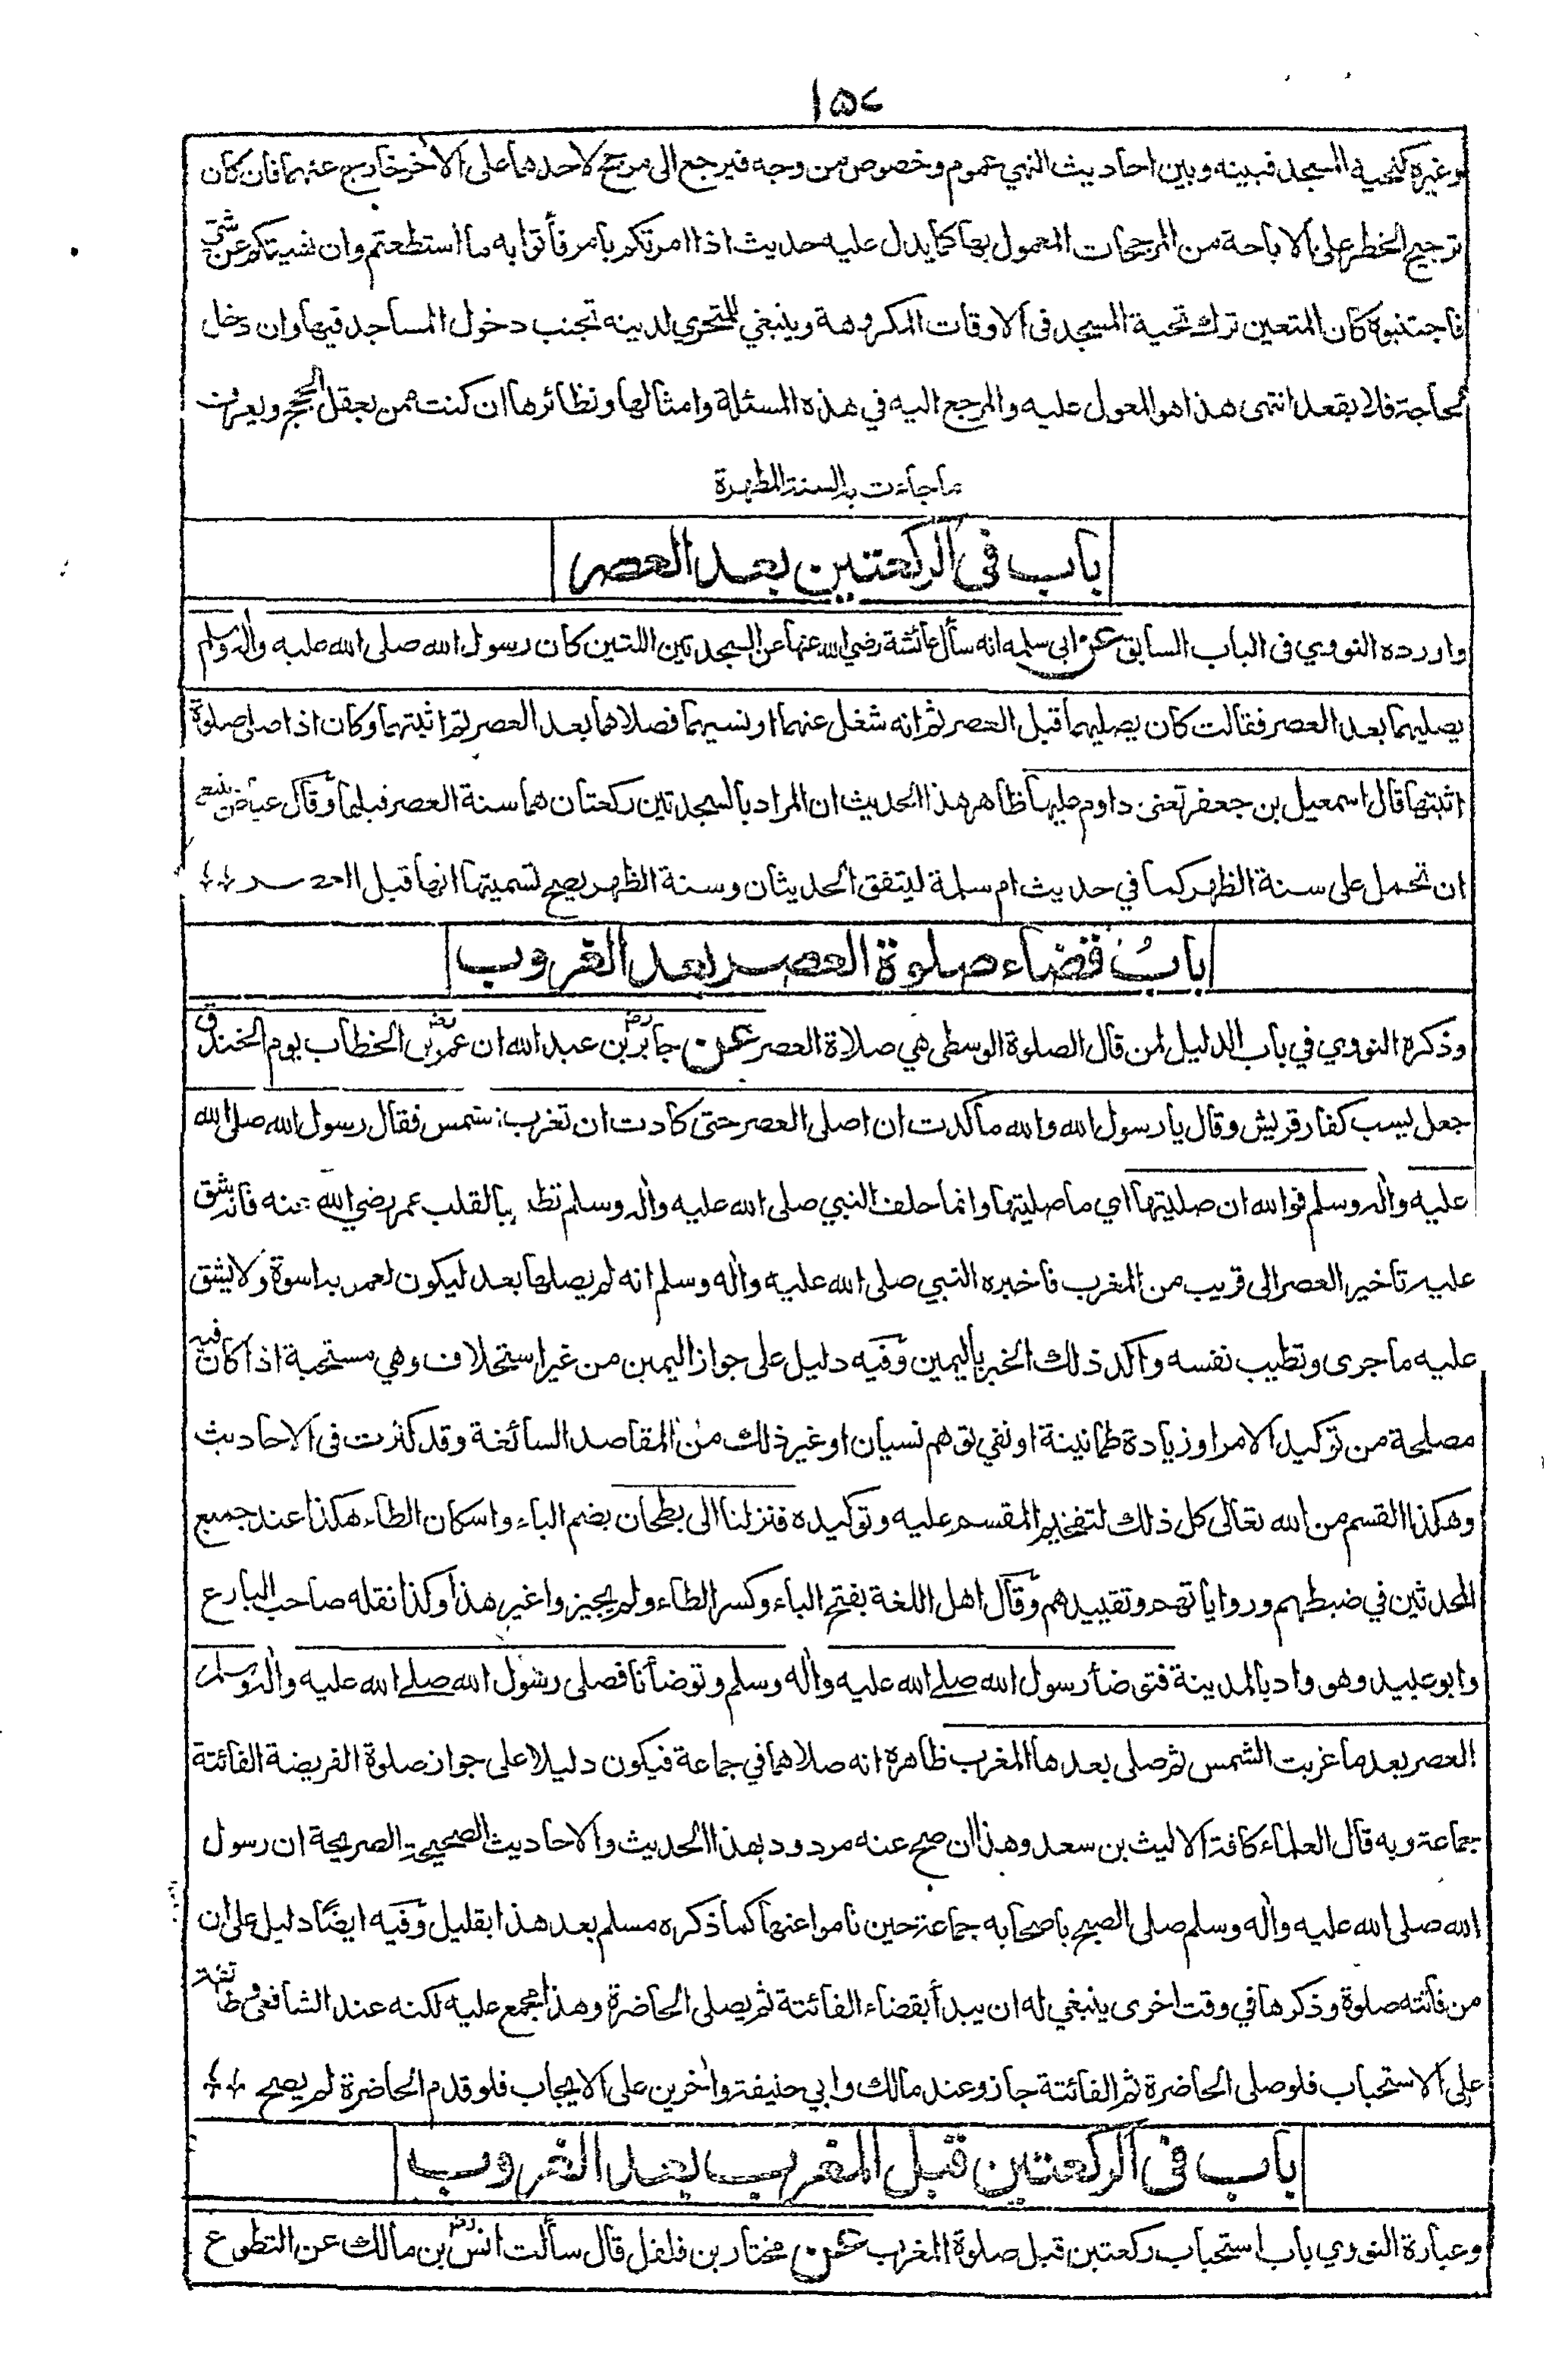 ١٥٧
وغيره كتحية المسجد فبينه وبين احاديث النهي عموم وخصوص من وجه فيرجع الى مرجح لاحدهما على الآخر خارج عنهما فان كان
ترجيح الخطر على الاباحة من المرجحات المعمول بها كما يدل عليه حديث اذا امرتكم بامر فأتوا به ما استطعتم وان نهيتكم عن شئ
فاجتنبوه كان المتعين ترك تحية المسجد فى الاوقات المكروهة وينبغي للمتحري لدينه تجنب دخول المساجد فيها وان دخل
لحاجة فلا يقعد انتهى هذا هو المعول عليه والمرجع اليه في هذه المسئلة وامثالها ونظائرها ان كنت ممن يعقل الحجج ويعرف
ما جاءت به السنة المطهرة
باب فى الركعتين بعد العصر
واورده النووي فى الباب السابق عن ابى سلمه انه سأل عائشة رضي الله عنها عن السجدتين اللتين كان رسول الله صلى الله عليه واله وسلم
يصليهما بعد العصر فقالت كان يصليهما قبل العصر ثم انه شغل عنهما او نسيهما فصلاهما بعد العصر ثم اثبتهما وكان اذا صلى صلوة
اثبتها قال اسمعيل بن جعفر تعنى داوم عليها ظاهر هذا الحديث ان المراد بالسجدتين ركعتان هما سنة العصر قبلها وقال عياض ينبغي
ان تحمل على سنة الظهر كما في حديث ام سلمة ليتفق الحديثان وسنة الظهر يصح تسميتها انها قبل العصر
باب قضاء صلوة العصر بعد الغروب
وذكره النووي في باب الدليل لمن قال الصلوة الوسطى هي صلاة العصر عن جابر رض بن عبد الله ان عمر رض بن الخطاب يوم الخندق
جعل يسب كفار قريش وقال يا رسول الله والله ما كدت ان اصلى العصر حتى كادت ان تغرب الشمس فقال رسول الله صلى الله
عليه واله وسلم فوالله ان صليتها اي ما صليتها وانما حلف النبي صلى الله عليه واله وسلم تطييبا لقلب عمر رضي الله عنه فانه شق
عليه تاخير العصر الى قريب من المغرب فاخبره النبي صلى الله عليه واله وسلم انه لم يصلها بعد ليكون لعمر به اسوة ولا يشق
عليه ما جرى وتطيب نفسه واكد ذلك الخبر باليمين وفيه دليل على جواز اليمين من غير استحلاف وهي مستحبة اذا كان فيه
مصلحة من توكيد الامر او زيادة طمانينة او نفي توهم نسيان او غير ذلك من المقاصد السائغة وقد كثرت فى الاحاديث
وهكذا القسم من الله تعالى كل ذلك لتفخيم المقسم عليه وتوكيده فنزلنا الى بطحان بضم الباء واسكان الطاء هكذا عند جميع
المحدثين في ضبطهم ورواياتهم وتقييدهم وقال اهل اللغة بفتح الباء وكسر الطاء ولم يجيزوا غير هذا وكذا نقله صاحب البارع
وابو عبيد وهو واد بالمدينة فتوضأ رسول الله صلى الله عليه واله وسلم وتوضأنا فصلى رسول الله صلى الله عليه واله وسلم
العصر بعد ما غربت الشمس ثم صلى بعدها المغرب ظاهره انه صلاهما في جماعة فيكون دليلا على جواز صلوة الفريضة الفائتة
جماعة وبه قال العلماء كافة الا ليث بن سعد وهذا ان صح عنه مردود بهذا الحديث والاحاديث الصحيحة الصريحة ان رسول
الله صلى الله عليه واله وسلم صلى الصبح باصحابه جماعة حين ناموا عنها كما ذكره مسلم بعد هذا بقليل وفيه ايضا دليل على ان
من فاتته صلوة وذكرها في وقت اخرى ينبغي له ان يبدأ بقضاء الفائتة ثم يصلى الحاضرة وهذا مجمع عليه لكنه عند الشافعي وطائفة
على الاستحباب فلو صلى الحاضرة ثم الفائتة جاز وعند مالك وابي حنيفة وآخرين على الايجاب فلو قدم الحاضرة لم يصح
باب فى الركعتين قبل المغرب بعد الغروب
وعبارة النووي باب استحباب ركعتين قبل صلوة المغرب عن مختار بن فلفل قال سألت انس رض بن مالك عن التطوع